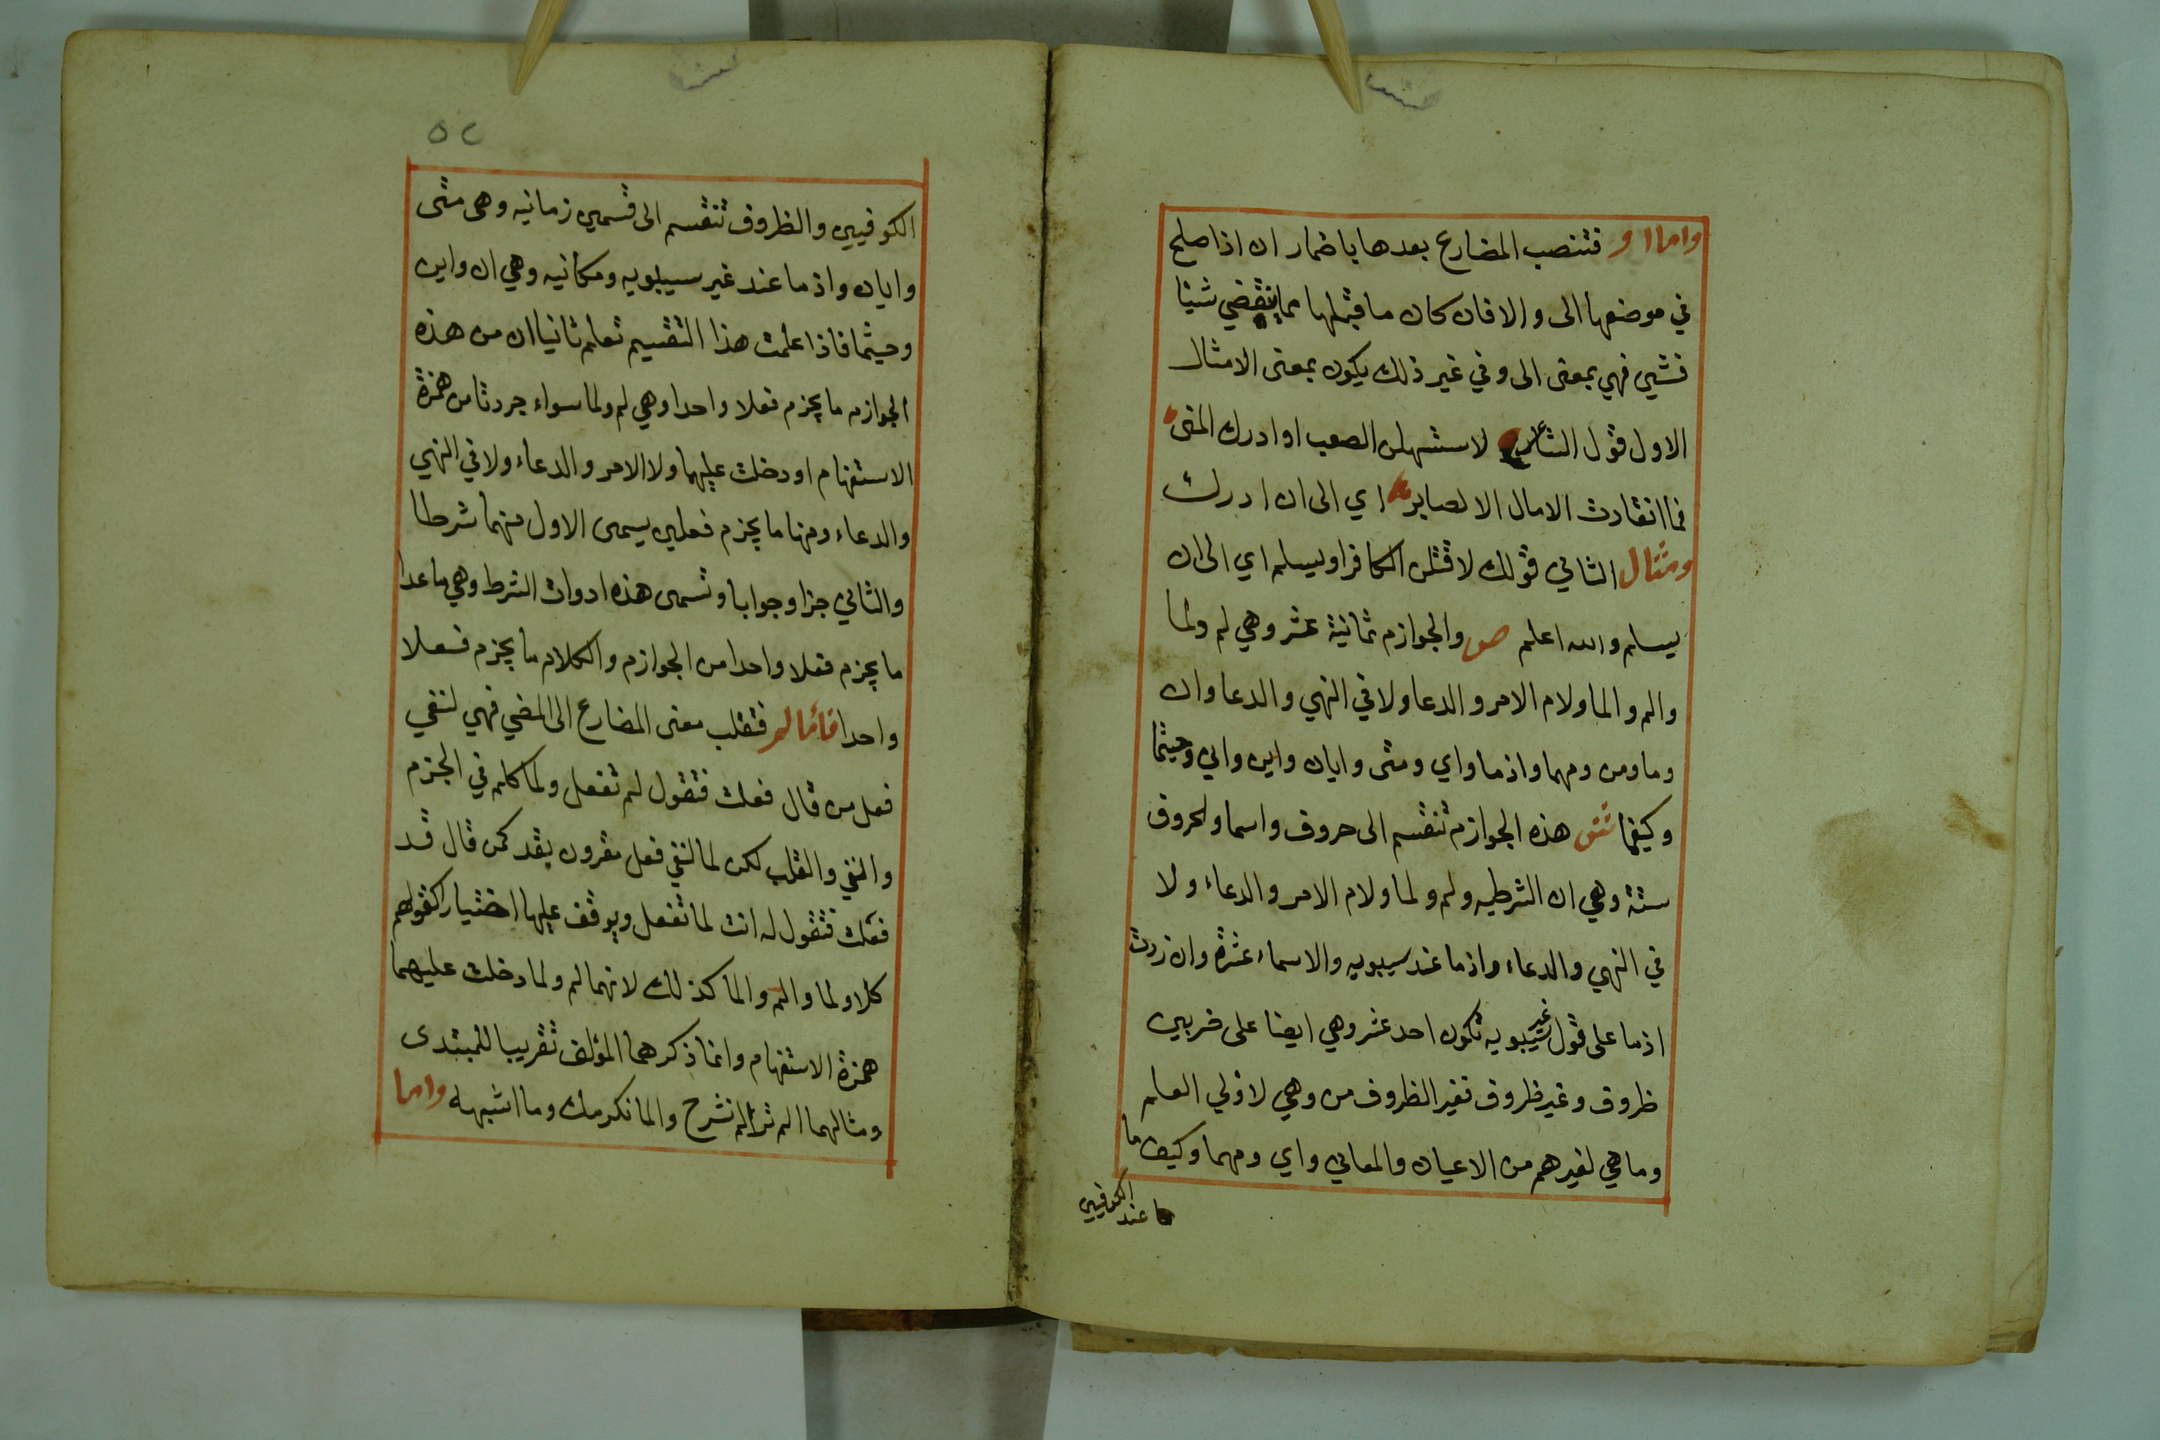 واما او فتنصب المضارع بعدها باضمار ان اذا صلح
في موضعها الى والا فان كان ما قبلها مما ينقضي شيئا
فشئ فهي بمعنى الى وفي غير ذلك يكون بمعنى الا مثال
الاول قول الشاعر لاستسهلن الصعب او ادرك المنى
فما انقادت الامال الا لصابر اي الى ان ادرك
ومثال الثاني قولك لاقتلن الكافر او يسلم اي الى ان
يسلم والله اعلم ص والجوازم ثمانية عشر وهي لم ولما
والم والما ولام الامر والدعا ولا في النهي والدعا وان
وما ومن ومهما واذ ما واي ومتى وايان واين واني وحيثما
وكيفما ش هذه الجوازم تنقسم الى حروف واسما والحروف
ستة وهي ان الشرطيه ولم ولما ولام الامر والدعاء ولا
في النهي والدعاء واذما عند سيبويه والاسماء عشرة وان زدت
اذما على قول غير سيبويه تكون احد عشر وهي ايضا على ضربين
ظروف وغير ظروف فغير الظروف من وهي لاولي العلم
وما هي لغيرهم من الاعيان والمعاني واي ومهما وكيف ما
عند الكوفيين
٥٢
الكوفيين والظروف تنقسم الى قسمين زمانيه وهى متى
وايان واذ ما عند غير سيبويه ومكانيه وهي ان واين
وحيثما فاذا علمت هذا التقسيم تعلم ثانيا ان من هذه
الجوازم ما يجزم فعلا واحدا وهي لم ولما سواء جردتا من همزة
الاستفهام او دخلت عليهما ولا الامر والدعاء ولا في النهي
والدعاء ومنها ما يجزم فعلين يسمى الاول منهما شرطا
والثاني جزا وجوابا وتسمى هذه ادوات الشرط وهي ما عدا
ما يجزم فعلا واحدا من الجوازم والكلام ما يجزم فعلا
واحدا فأما لم فتقلب معنى المضارع الى المضي فهي لنفي
فعل من قال فعلت فتقول لم تفعل ولما كلم في الجزم
والنفي والقلب لكن لما لنفي فعل مقرون بقد كمن قال قد
فعلت فتقول له انت لما تفعل ويوقف عليها اختيارا كقولهم
كلا ولما والم والما كذلك لانهما لم ولما دخلت عليهما
همزة الاستفهام وانما ذكرهما المؤلف تقريبا للمبتدى
ومثالهما الم تر الم نشرح والما نكرمك وما اشبهه واما